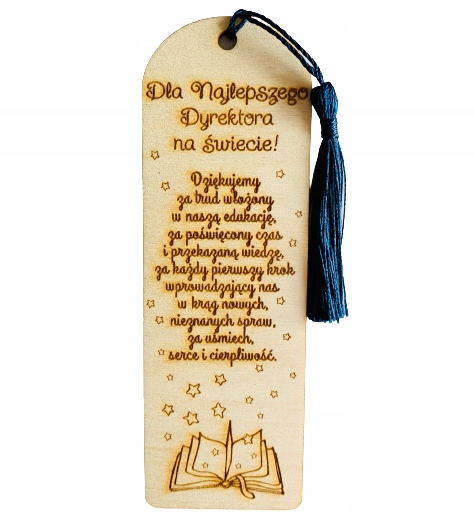 Dla Najlepszego
Dyrektora
na świecie!
Dziękujemy
za trud włożony
w naszą edukację,
za poświęcony czas
i przekazaną wiedzę,
za każdy pierwszy krok
wprowadzający nas
w krąg nowych,
nieznanych spraw,
za uśmiech,
serce i cierpliwość.